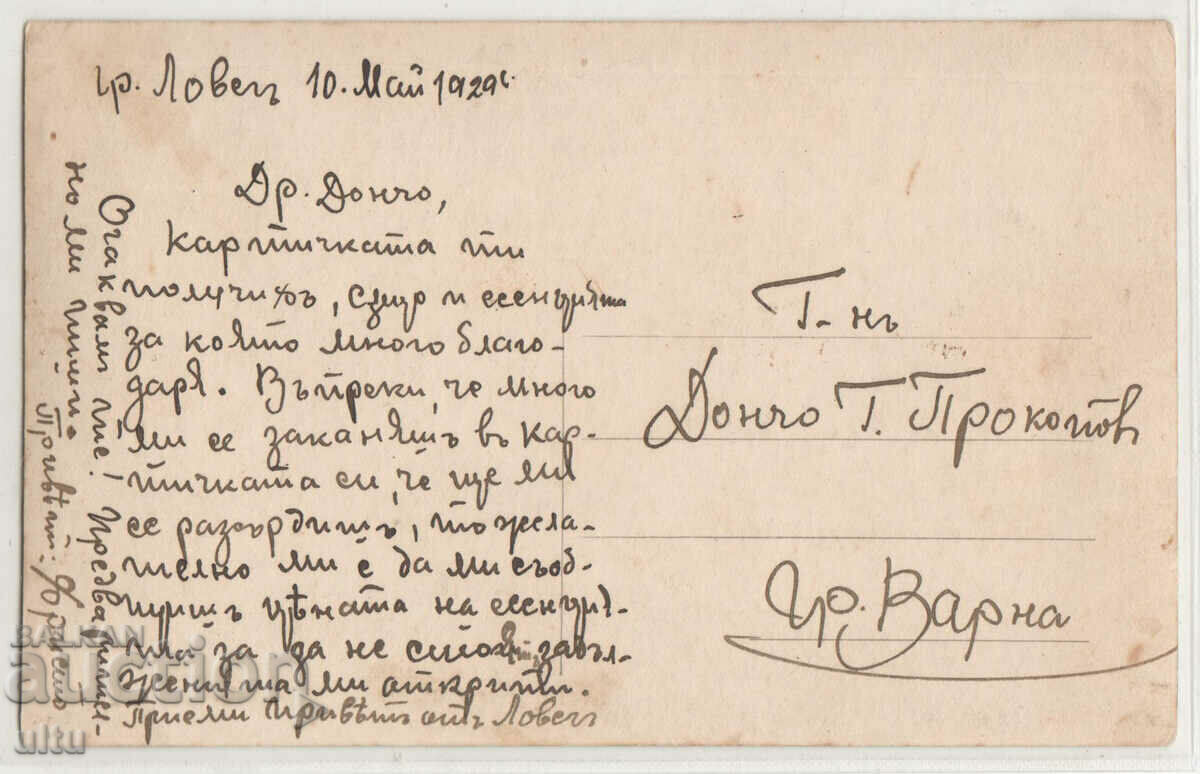 гр. Ловечъ 10. Май 1929г.
Др. Дончо,
Картичката ти
получихъ, също и есенцията
за която много благо-
даря. Въпреки, че много
ми се заканяшъ въ кар-
тичката си, че ще ми
се разсърдишъ, то жела-
телно ми е да ми съоб-
щишъ цѣната на есенция-
та за да не стоятъ задъл-
жения та ми открити.
Приеми Привѣтъ отъ Ловечъ
Очаквамъ те! Предварител-
но ми пиши
Привѣт: Христо
Г-нъ
Дончо Т. Прокопов
гр. Варна
BALKAN
auction
ultu